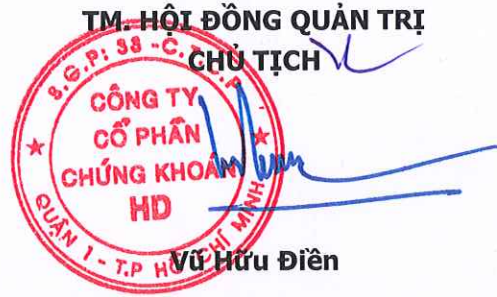 TM. HỘI ĐỒNG QUẢN TRỊ
CHỦ TỊCH
S.G.P: 38 -C.T.C.P
CÔNG TY
CỔ PHẦN
CHỨNG KHOÁN
HD
QUẬN 1 - T.P HỒ CHÍ MINH
Vũ Hữu Điền